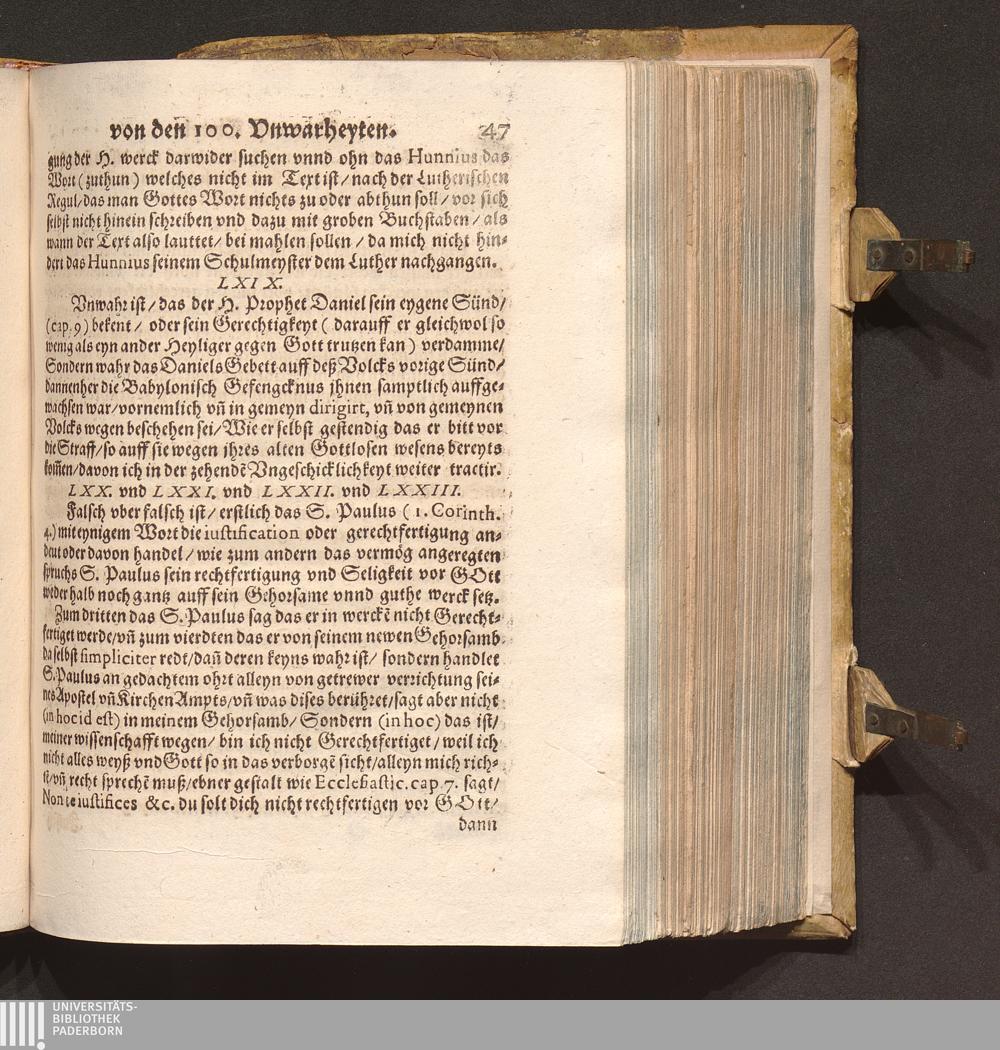 von den 100. Vnwarheyten. 47
gung der H. werck darwider suchen vnnd ohn das Hunnius das
Wort (zuthun) welches nicht im Text ist / nach der Lutherischen
Regul / das man Gottes Wort nichts zu oder abthun soll / vor sich
selbst nicht hinein schreiben vnd dazu mit groben Buchstaben / als
wann der Text also lauttet / bei mahlen sollen / da mich nicht hin-
dert das Hunnius seinem Schulmeyster dem Luther nachgangen.
LXIX.
Vnwahr ist / das der H. Prophet Daniel sein eygene Sünd /
(cap. 9) bekent / oder sein Gerechtigkeyt ( darauff er gleichwol so
wenig als eyn ander Heyliger gegen Gott trutzen kan) verdamme /
Sondern wahr das Daniels Gebett auff deß Volcks vorige Sünd /
dannenher die Babylonisch Gefengcknus jhnen samptlich auffge-
wachsen war / vornemlich vn̄ in gemeyn dirigirt, vn̄ von gemeynen
Volcks wegen beschehen sei / Wie er selbst gestendig das er bitt vor
die Straff / so auff sie wegen jhres alten Gottlosen wesens bereyts
kom̄en / davon ich in der zehendē Vngeschicklichkeyt weiter tractir.
LXX. vnd LXXI. vnd LXXII. vnd LXXIII.
Falsch vber falsch ist / erstlich das S. Paulus ( 1. Corinth.
4.) mit eynigem Wort die iustification oder gerechtfertigung an-
deut oder davon handel / wie zum andern das vermög angeregten
spruchs S. Paulus sein rechtfertigung vnd Seligkeit vor GOtt
weder halb noch gantz auff sein Gehorsame vnnd guthe werck setz.
Zum dritten das S. Paulus sag das er in werckē nicht Gerecht-
fertiget werde / vn̄ zum vierdten das er von seinem newen Gehorsamb
da selbst simpliciter redt / dan̄ deren keyns wahr ist / sondern handlet
S. Paulus an gedachtem ohrt alleyn von getrewer verrichtung sei-
nes Apostel vn̄ Kirchen Ampts / vn̄ was dises berühret / sagt aber nicht
(in hoc id est) in meinem Gehorsamb / Sondern (in hoc) das ist /
meiner wissenschafft wegen / bin ich nicht Gerechtfertiget / weil ich
nicht alles weyß vnd Gott so in das verborgē sicht / alleyn mich rich-
tē / vn̄ recht sprechē muß / ebner gestalt wie Ecclesiastic. cap. 7. sagt /
Non te iustifices &c. du solt dich nicht rechtfertigen vor GOtt /
dann
UNIVERSITÄTS-
BIBLIOTHEK
PADERBORN